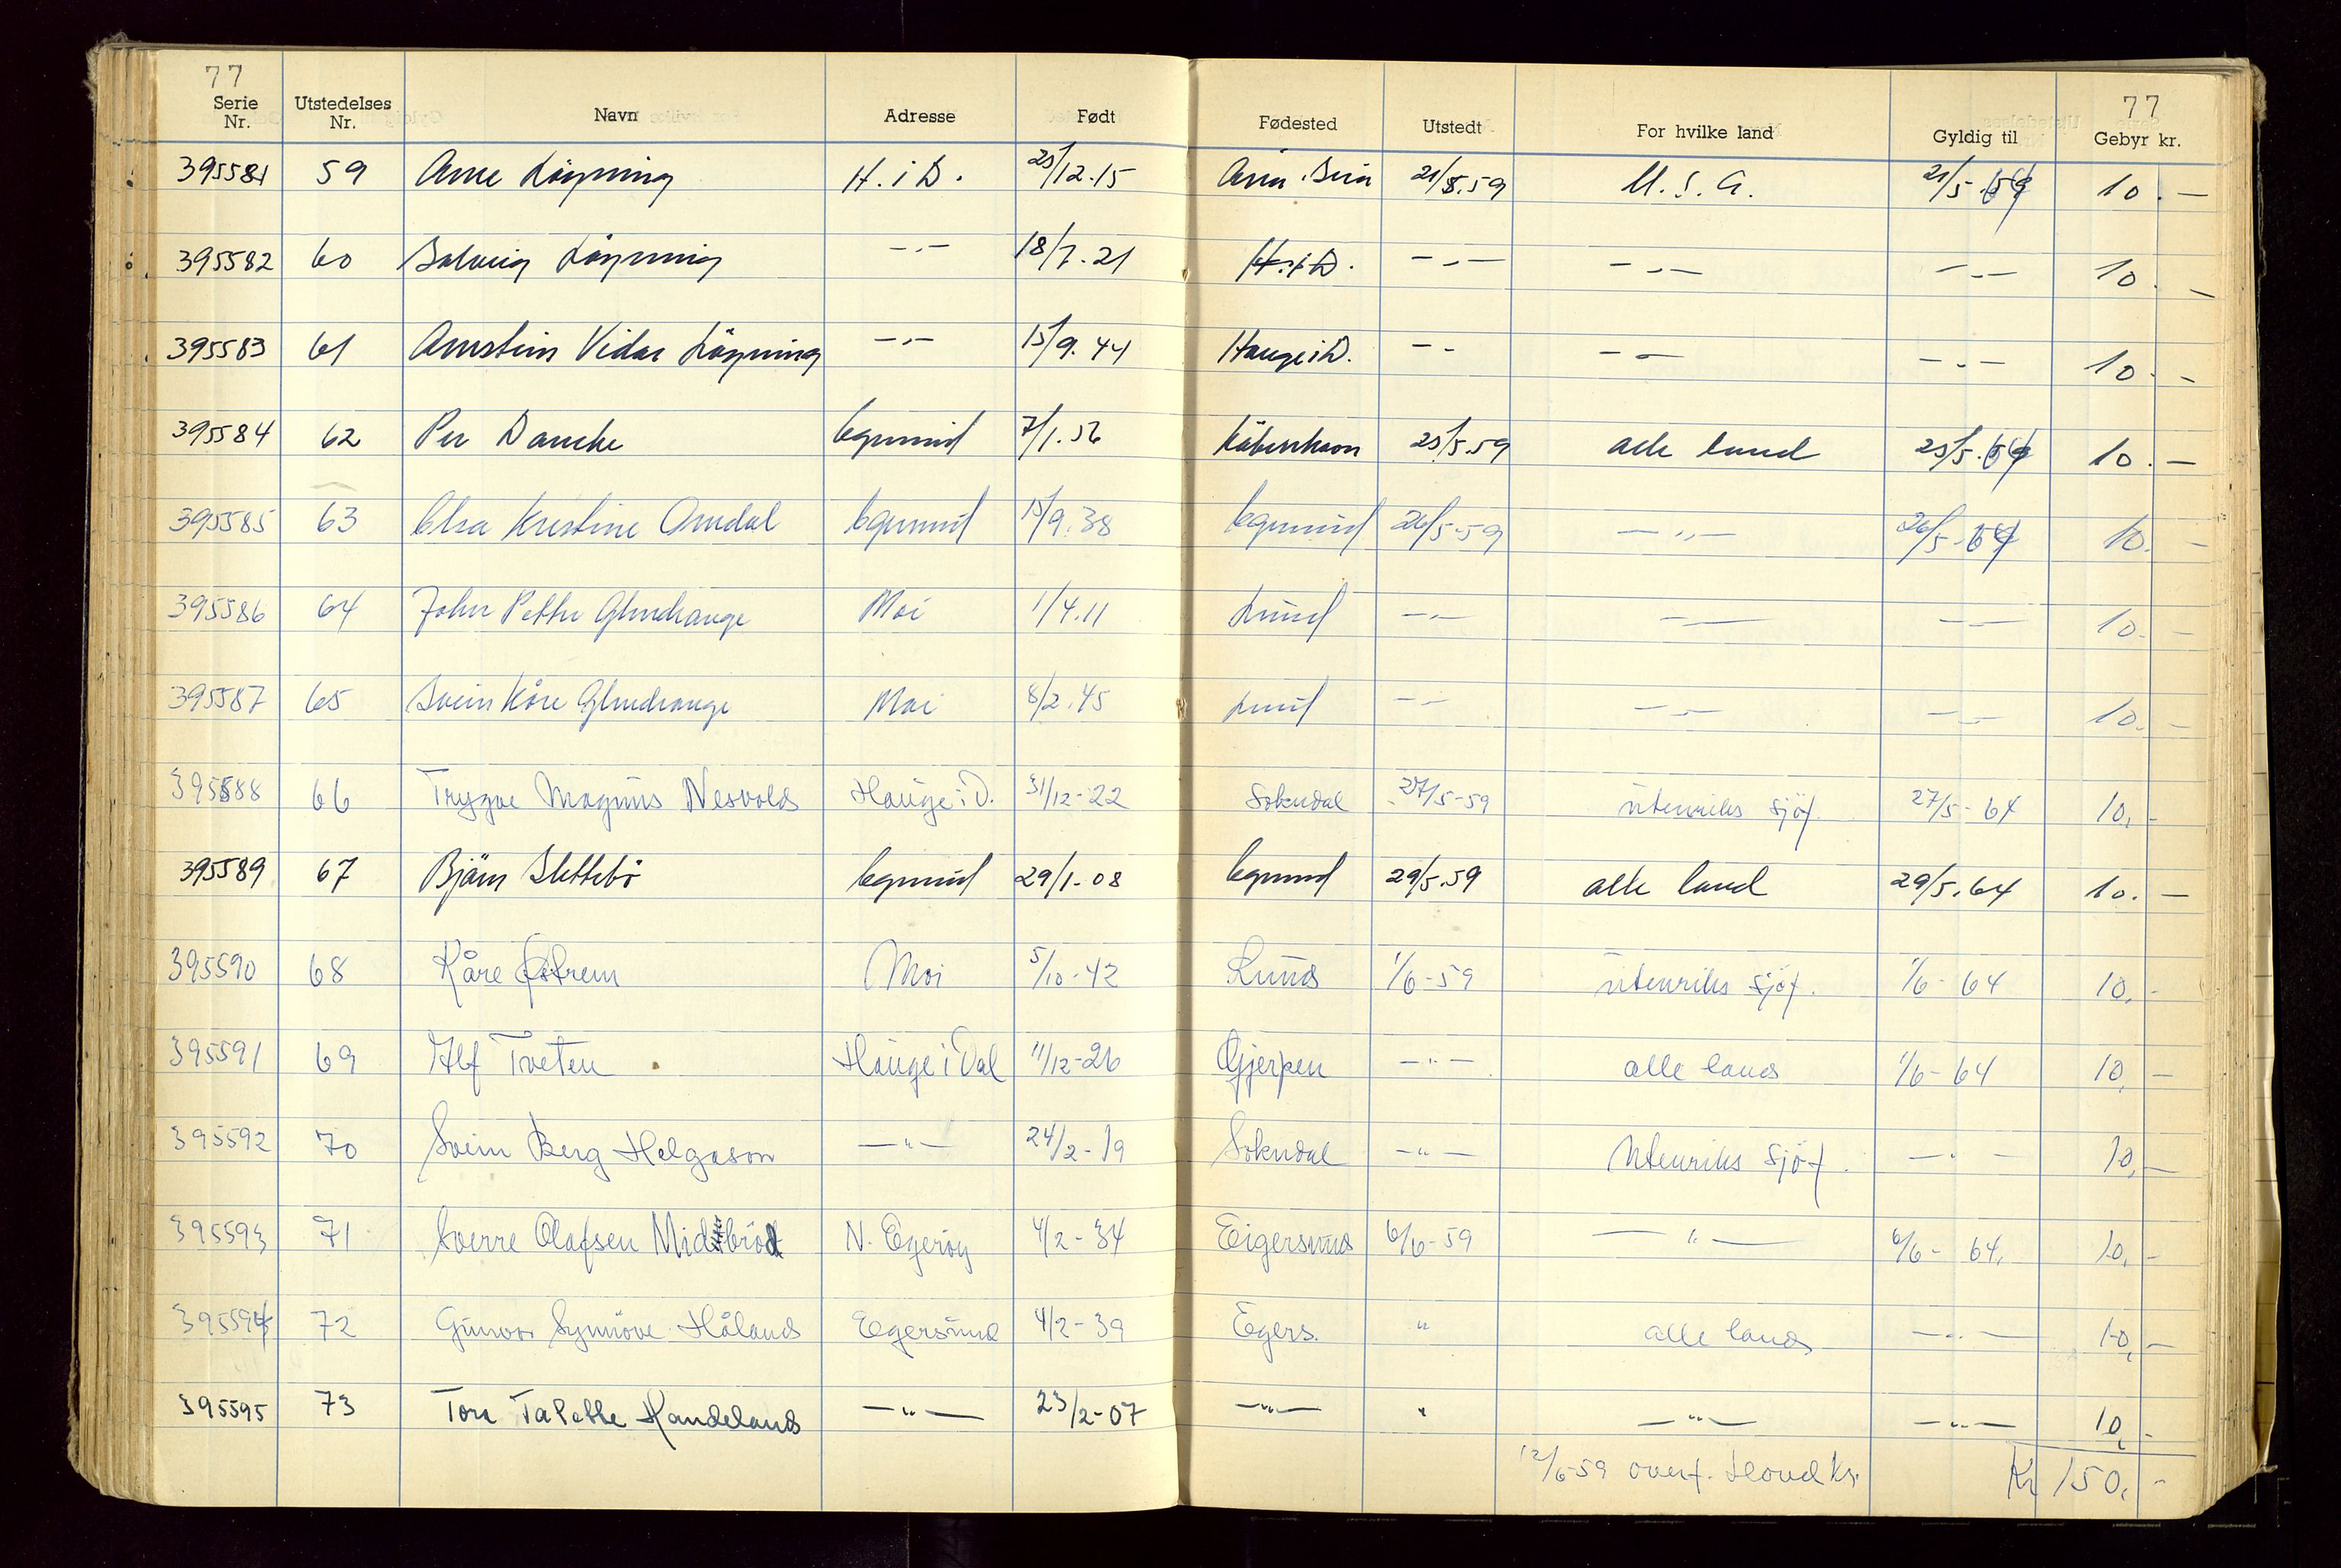 77 77
Serie Nr. Utstedelses Nr. Navn Adresse Født Fødested Utstedt For hvilke land Gyldig til Gebyr kr.
395581 59 Arne H. i D. 25/12.15 21/5.59 U.S.A. 21/5. 10.—
395582 60 Solveig —„— 18/7.21 H. i D. —„— —„— —„— 10.—
395583 61 Arnstein Vidar —„— 15/9.44 Hauge i D. —„— —„— —„— 10.—
395584 62 Per Egersund 7/1. København 25/5.59 alle land 25/5.64 10.—
395585 63 Elsa Kristine Omdal Egersund 15/9.38 Egersund 26/5-59 —„— 26/5-64 10.—
395586 64 John Petter Moi 1/4.11 Lund —„— —„— —„— 10.—
395587 65 Svein Kåre Moi 8/2.45 Lund —„— —„— —„— 10.—
395588 66 Trygve Magnus Nesvold Hauge i D. 31/12-22 Sokndal 27/5-59 utenriks sjøf. 27/5-64 10,-
395589 67 Bjørn Slettebø Egersund 29/1-08 Egersund 29/5.59 alle land 29/5.64 10.—
395590 68 Kåre Østrem Moi 5/10-42 Lund 1/6-59 utenriks sjøf. 1/6-64 10,-
395591 69 Alf Tveten Hauge i Dal 11/12-26 Gjerpen —„— alle land 1/6-64 10,—
395592 70 Svein Berg Helgason —„— 24/2-19 Sokndal —„— Utenriks sjøf. —„— 10,—
395593 71 Sverre Olafsen Midbrød N. Egerøy 4/2-34 Eigersund 6/6-59 —„— 6/6-64. 10,-
395594 72 Gunvor Synnøve Håland Egersund 4/2-39 Egers. „ alle land —„— 10,—
395595 73 Tora Handeland —„— 23/2-07 —„— „ —„— —„— 10,-
12/6-59 overf. Hovedks. Kr 150,-